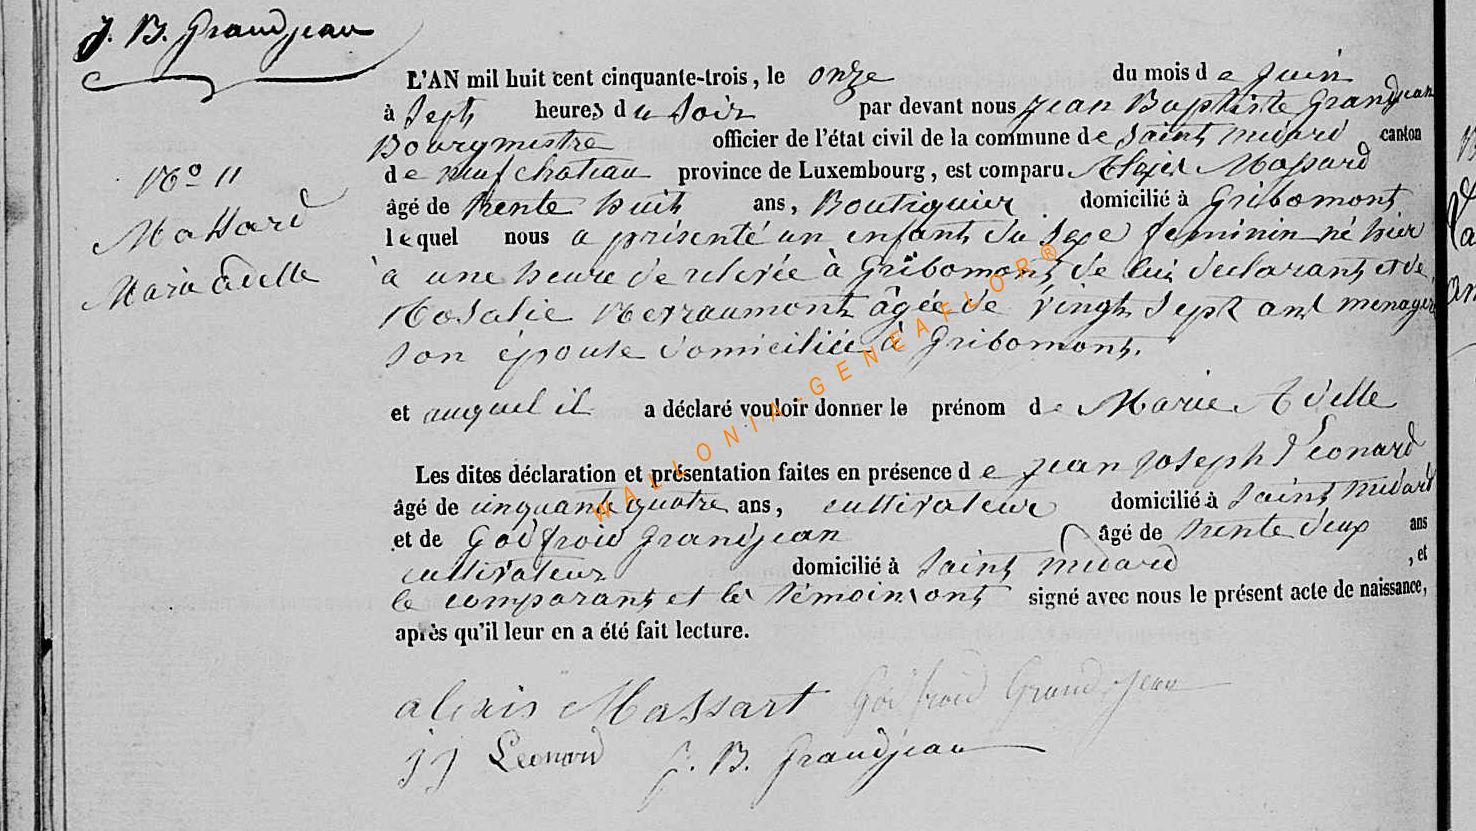 J. B. Grandjean
L'AN mil huit cent cinquante-trois, le onze du mois de Juin
à Sept heures du Soir par devant nous Jean Baptiste Grandjean
Bourgmestre officier de l'état civil de la commune de Saint medard canton
de neufchateau province de Luxembourg, est comparu Alexis Massard
âgé de trente huit ans, Boutiquier domicilié à Gribomont
lequel nous a présenté un enfant du sexe feminin né hier
à une heure de relevée à Gribomont, de lui declarant et de
Rosalie agée de vingt sept ans menagère
son épouse domiciliée à Gribomont.
N° 11
Massard
Marie Adelle
et auquel il a déclaré vouloir donner le prénom de Marie Adelle
Les dites déclaration et présentation faites en présence de Jean Joseph Léonard
âgé de cinquante quatre ans, cultivateur domicilié à Saint Médard
et de Godfroid Grandjean âgé de trente deux ans
cultivateur domicilié à Saint médard , et
le comparant et les témoins ont signé avec nous le présent acte de naissance,
après qu'il leur en a été fait lecture.
alexis Massart Godfroid Grandjean
JJ Leonard J. B. Grandjean
WALLONIA-GENEAFLOR®